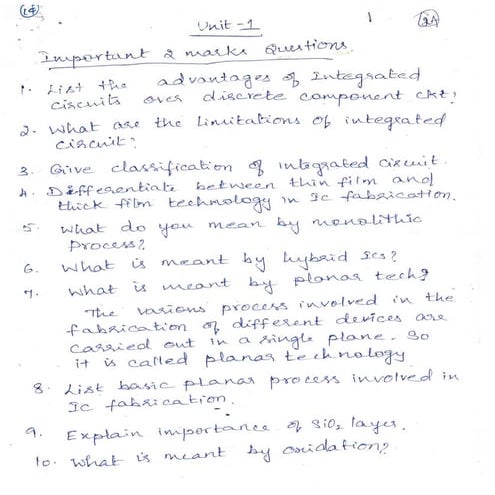 14
Unit-1
1
2A
Important 2 marks Questions.
1. List the advantages of Integrated
circuits over discrete component ckt?
2. What are the limitations of integrated
circuit?
3. Give classification of integrated circuit.
4. Differentiate between thin film and
thick film technology in Ic fabrication.
5. What do you mean by monolithic
process?
6. What is meant by hybrid Ics?
7. What is meant by planar tech?
The various process involved in the
fabrication of different devices are
carried out in a single plane. So
it is called planar technology
8. List basic planar process involved in
Ic fabrication.
9. Explain importance of SiO2 layer.
10. What is meant by oxidation?